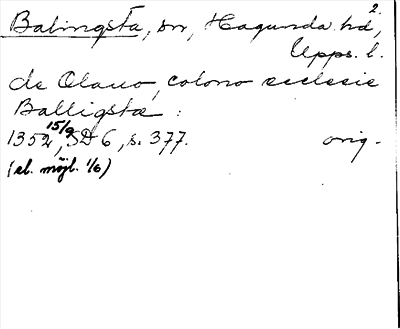 2.
Balingsta, sn, Hagunda hd,
Upps. l.
de Olauo, colono ecclesie
Balligstæ :
1352 15/9, SD 6, s. 377. orig.
(el. möjl. 1/6)